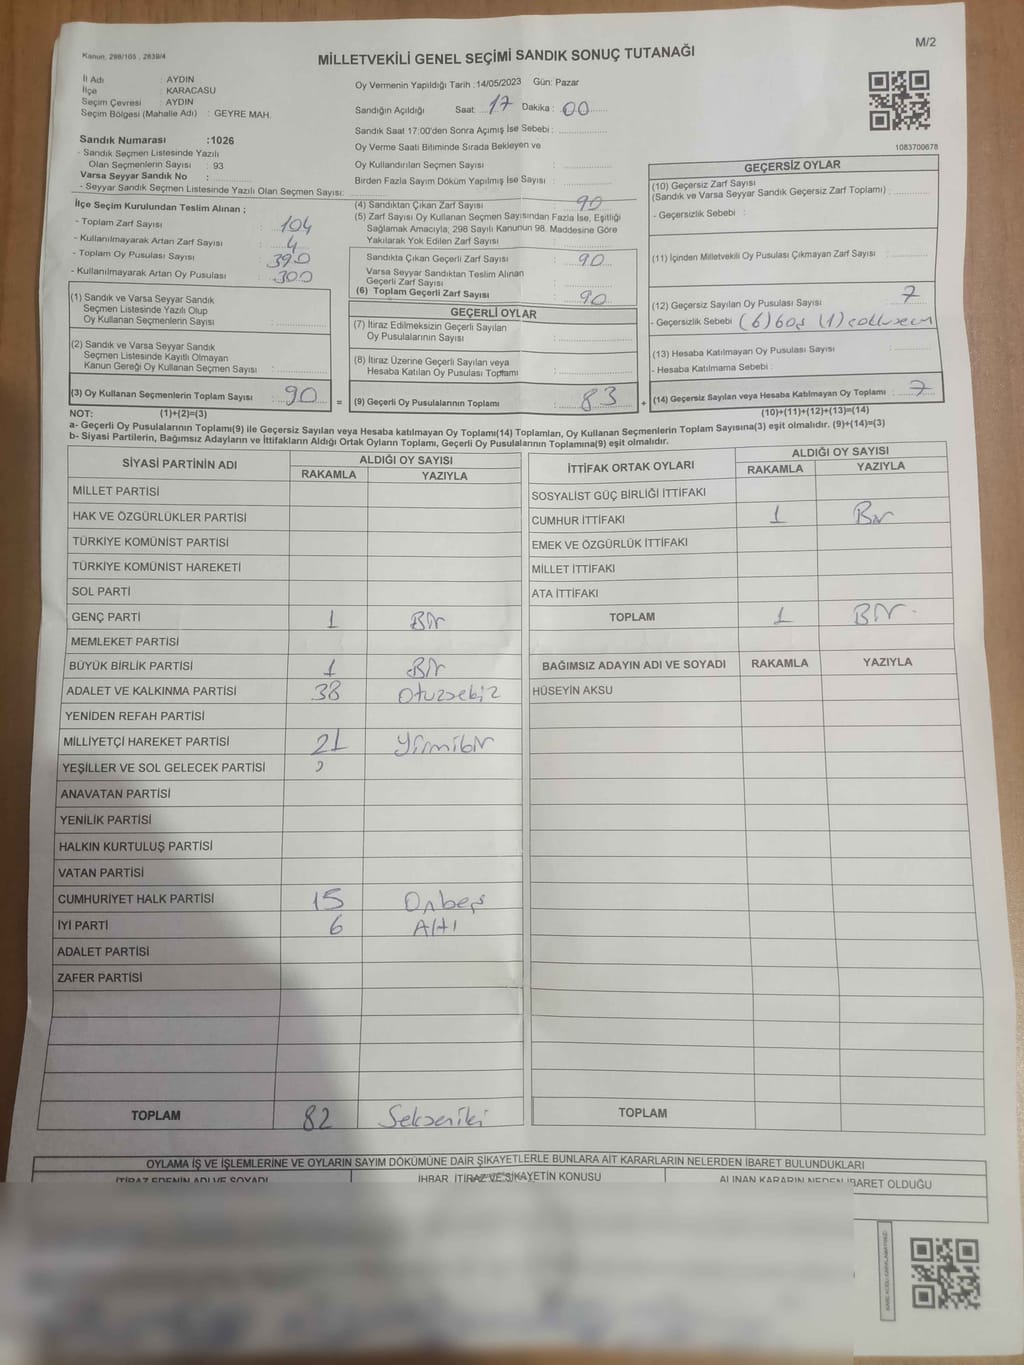 Kanun: 298/105 , 2839/4
MİLLETVEKİLİ GENEL SEÇİMİ SANDIK SONUÇ TUTANAĞI
M/2
İl Adı : AYDIN
İlçe : KARACASU
Seçim Çevresi : AYDIN
Seçim Bölgesi (Mahalle Adı) : GEYRE MAH.
Sandık Numarası :1026
- Sandık Seçmen Listesinde Yazılı
Olan Seçmenlerin Sayısı : 93
Varsa Seyyar Sandık No :
- Seyyar Sandık Seçmen Listesinde Yazılı Olan Seçmen Sayısı:
Oy Vermenin Yapıldığı Tarih :14/05/2023 Gün: Pazar
Sandığın Açıldığı Saat 17 Dakika : 00
Sandık Saat 17:00'den Sonra Açımış İse Sebebi :
Oy Verme Saati Bitiminde Sırada Bekleyen ve
Oy Kullandırılan Seçmen Sayısı :
Birden Fazla Sayım Döküm Yapılmış İse Sayısı :
1083700678
İlçe Seçim Kurulundan Teslim Alınan ;
- Toplam Zarf Sayısı : 104
- Kullanılmayarak Artan Zarf Sayısı : 4
- Toplam Oy Pusulası Sayısı : 390
- Kullanılmayarak Artan Oy Pusulası : 300
(1) Sandık ve Varsa Seyyar Sandık
Seçmen Listesinde Yazılı Olup
Oy Kullanan Seçmenlerin Sayısı :
(2) Sandık ve Varsa Seyyar Sandık
Seçmen Listesinde Kayıtlı Olmayan
Kanun Gereği Oy Kullanan Seçmen Sayısı :
(3) Oy Kullanan Seçmenlerin Toplam Sayısı : 90 =
(4) Sandıktan Çıkan Zarf Sayısı : 90
(5) Zarf Sayısı Oy Kullanan Seçmen Sayısından Fazla İse, Eşitliği
Sağlamak Amacıyla, 298 Sayılı Kanunun 98. Maddesine Göre
Yakılarak Yok Edilen Zarf Sayısı :
Sandıkta Çıkan Geçerli Zarf Sayısı : 90
Varsa Seyyar Sandıktan Teslim Alınan
Geçerli Zarf Sayısı :
(6) Toplam Geçerli Zarf Sayısı : 90
GEÇERLİ OYLAR
(7) İtiraz Edilmeksizin Geçerli Sayılan
Oy Pusulalarının Sayısı :
(8) İtiraz Üzerine Geçerli Sayılan veya
Hesaba Katılan Oy Pusulası Toplamı :
(9) Geçerli Oy Pusulalarının Toplamı : 83 +
GEÇERSİZ OYLAR
(10) Geçersiz Zarf Sayısı
(Sandık ve Varsa Seyyar Sandık Geçersiz Zarf Toplamı) :
- Geçersizlik Sebebi :
(11) İçinden Milletvekili Oy Pusulası Çıkmayan Zarf Sayısı :
(12) Geçersiz Sayılan Oy Pusulası Sayısı : 7
- Geçersizlik Sebebi : (6) boş (1)
(13) Hesaba Katılmayan Oy Pusulası Sayısı :
- Hesaba Katılmama Sebebi :
(14) Geçersiz Sayılan veya Hesaba Katılmayan Oy Toplamı : 7
NOT: (1)+(2)=(3)
(10)+(11)+(12)+(13)=(14)
a- Geçerli Oy Pusulalarının Toplamı(9) ile Geçersiz Sayılan veya Hesaba katılmayan Oy Toplamı(14) Toplamları, Oy Kullanan Seçmenlerin Toplam Sayısına(3) eşit olmalıdır. (9)+(14)=(3)
b- Siyasi Partilerin, Bağımsız Adayların ve İttifakların Aldığı Ortak Oyların Toplamı, Geçerli Oy Pusulalarının Toplamına(9) eşit olmalıdır.
SİYASİ PARTİNİN ADI ALDIĞI OY SAYISI
RAKAMLA YAZIYLA
MİLLET PARTİSİ
HAK VE ÖZGÜRLÜKLER PARTİSİ
TÜRKİYE KOMÜNİST PARTİSİ
TÜRKİYE KOMÜNİST HAREKETİ
SOL PARTİ
GENÇ PARTİ 1 Bir
MEMLEKET PARTİSİ
BÜYÜK BİRLİK PARTİSİ 1 Bir
ADALET VE KALKINMA PARTİSİ 38 Otuzsekiz
YENİDEN REFAH PARTİSİ
MİLLİYETÇİ HAREKET PARTİSİ 21 Yirmibir
YEŞİLLER VE SOL GELECEK PARTİSİ
ANAVATAN PARTİSİ
YENİLİK PARTİSİ
HALKIN KURTULUŞ PARTİSİ
VATAN PARTİSİ
CUMHURİYET HALK PARTİSİ 15 Onbeş
İYİ PARTİ 6 Altı
ADALET PARTİSİ
ZAFER PARTİSİ
TOPLAM 82 Sekseniki
İTTİFAK ORTAK OYLARI ALDIĞI OY SAYISI
RAKAMLA YAZIYLA
SOSYALİST GÜÇ BİRLİĞİ İTTİFAKI
CUMHUR İTTİFAKI 1 Bir
EMEK VE ÖZGÜRLÜK İTTİFAKI
MİLLET İTTİFAKI
ATA İTTİFAKI
TOPLAM 1 Bir
BAĞIMSIZ ADAYIN ADI VE SOYADI RAKAMLA YAZIYLA
HÜSEYİN AKSU
TOPLAM
OYLAMA İŞ VE İŞLEMLERİNE VE OYLARIN SAYIM DÖKÜMÜNE DAİR ŞİKAYETLERLE BUNLARA AİT KARARLARIN NELERDEN İBARET BULUNDUKLARI
İTİRAZ EDENİN ADI VE SOYADI İHBAR, İTİRAZ VE ŞİKAYETİN KONUSU ALINAN KARARIN NEDEN İBARET OLDUĞU